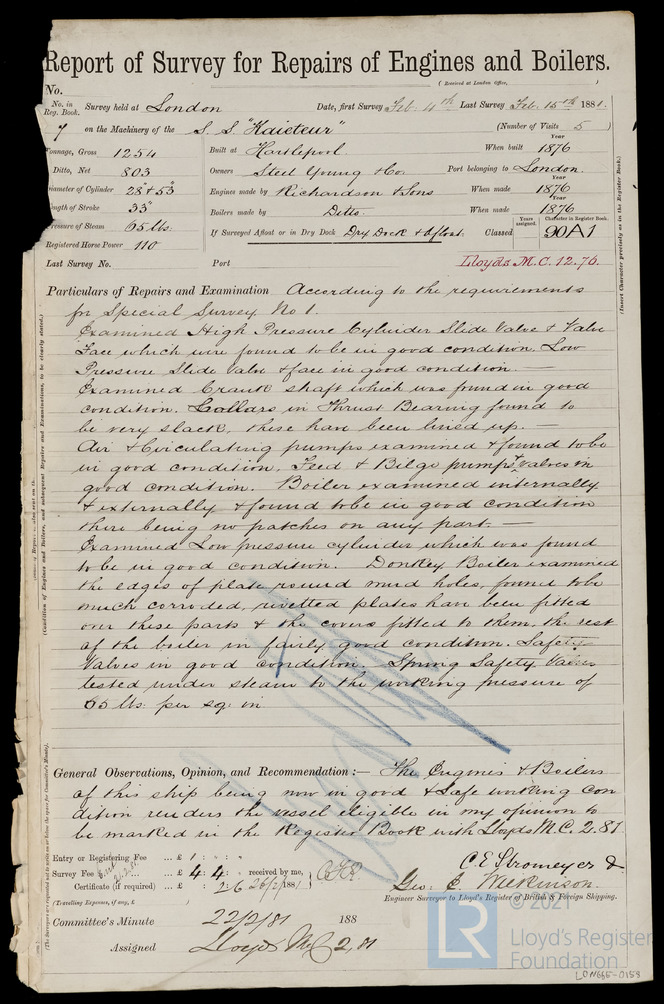 Report of Survey for Repairs of Engines and Boilers.
(Received at London Office, )
No.
No. in Reg. Book. Survey held at London Date, first Survey Feb. 4th Last Survey Feb. 15th 1881.
7 on the Machinery of the S. S. "Kaieteur" (Number of Visits 5 )
Tonnage, Gross 1254 Built at Hartlepool When built Year 1876
Ditto, Net 803 Owners Steel Young & Co. Port belonging to London.
Diameter of Cylinder 28" & 53" Engines made by Richardson & Sons When made Year 1876
Length of Stroke 33" Boilers made by Ditto. When made Year 1876
Pressure of Steam 65 lbs. If Surveyed Afloat or in Dry Dock Dry Dock & Afloat. Classed Years assigned. Character in Register Book. 90A1
Registered Horse Power 110
Last Survey No. Port Lloyds M.C. 12.76.
(Insert Character precisely as in the Register Book.)
Particulars of Repairs and Examination According to the requirements
for Special Survey No 1.
Examined High Pressure Cylinder Slide Valve & Valve
Face which were found to be in good condition, Low
Pressure Slide Valve & face in good condition. —
Examined Crank shaft which was found in good
condition. Collars in Thrust Bearing found to
be very slack, these have been lined up. —
Air & Circulating pumps examined & found to be
in good condition, Feed & Bilge pumps & valves in
good condition. Boiler examined internally
& externally & found to be in good condition
there being no patches on any part. —
Examined Low pressure cylinder which was found
to be in good condition. Donkey Boiler examined
the edges of plate round mud holes, found to be
much corroded, rivetted plates have been fitted
over these parts & the covers fitted to them, the rest
of the boiler in fairly good condition. Safety
Valves in good condition. Spring Safety Valves
tested under steam to the working pressure of
65 lbs. per sq: in
General Observations, Opinion, and Recommendation :— The Engines & Boilers
of this ship being now in good & safe working con
dition renders the vessel eligible in my opinion to
be marked in the Register Book with Lloyds M.C. 2.81
Entry or Registering Fee ... £ 1 : " : "
Survey Fee ... £ 4 : 4 : " received by me,
Certificate (if required) ... £ : 2/6 26/2/1881
(Travelling Expenses, if any, £ )
C E Stromeyer &
Geo: E. Wilkinson.
Engineer Surveyor to Lloyd's Register of British & Foreign Shipping.
Committee's Minute 22/2/81 188
Assigned Lloyds MC 2,81
LR
© 2021
Lloyd's Register
Foundation
LON665-0158